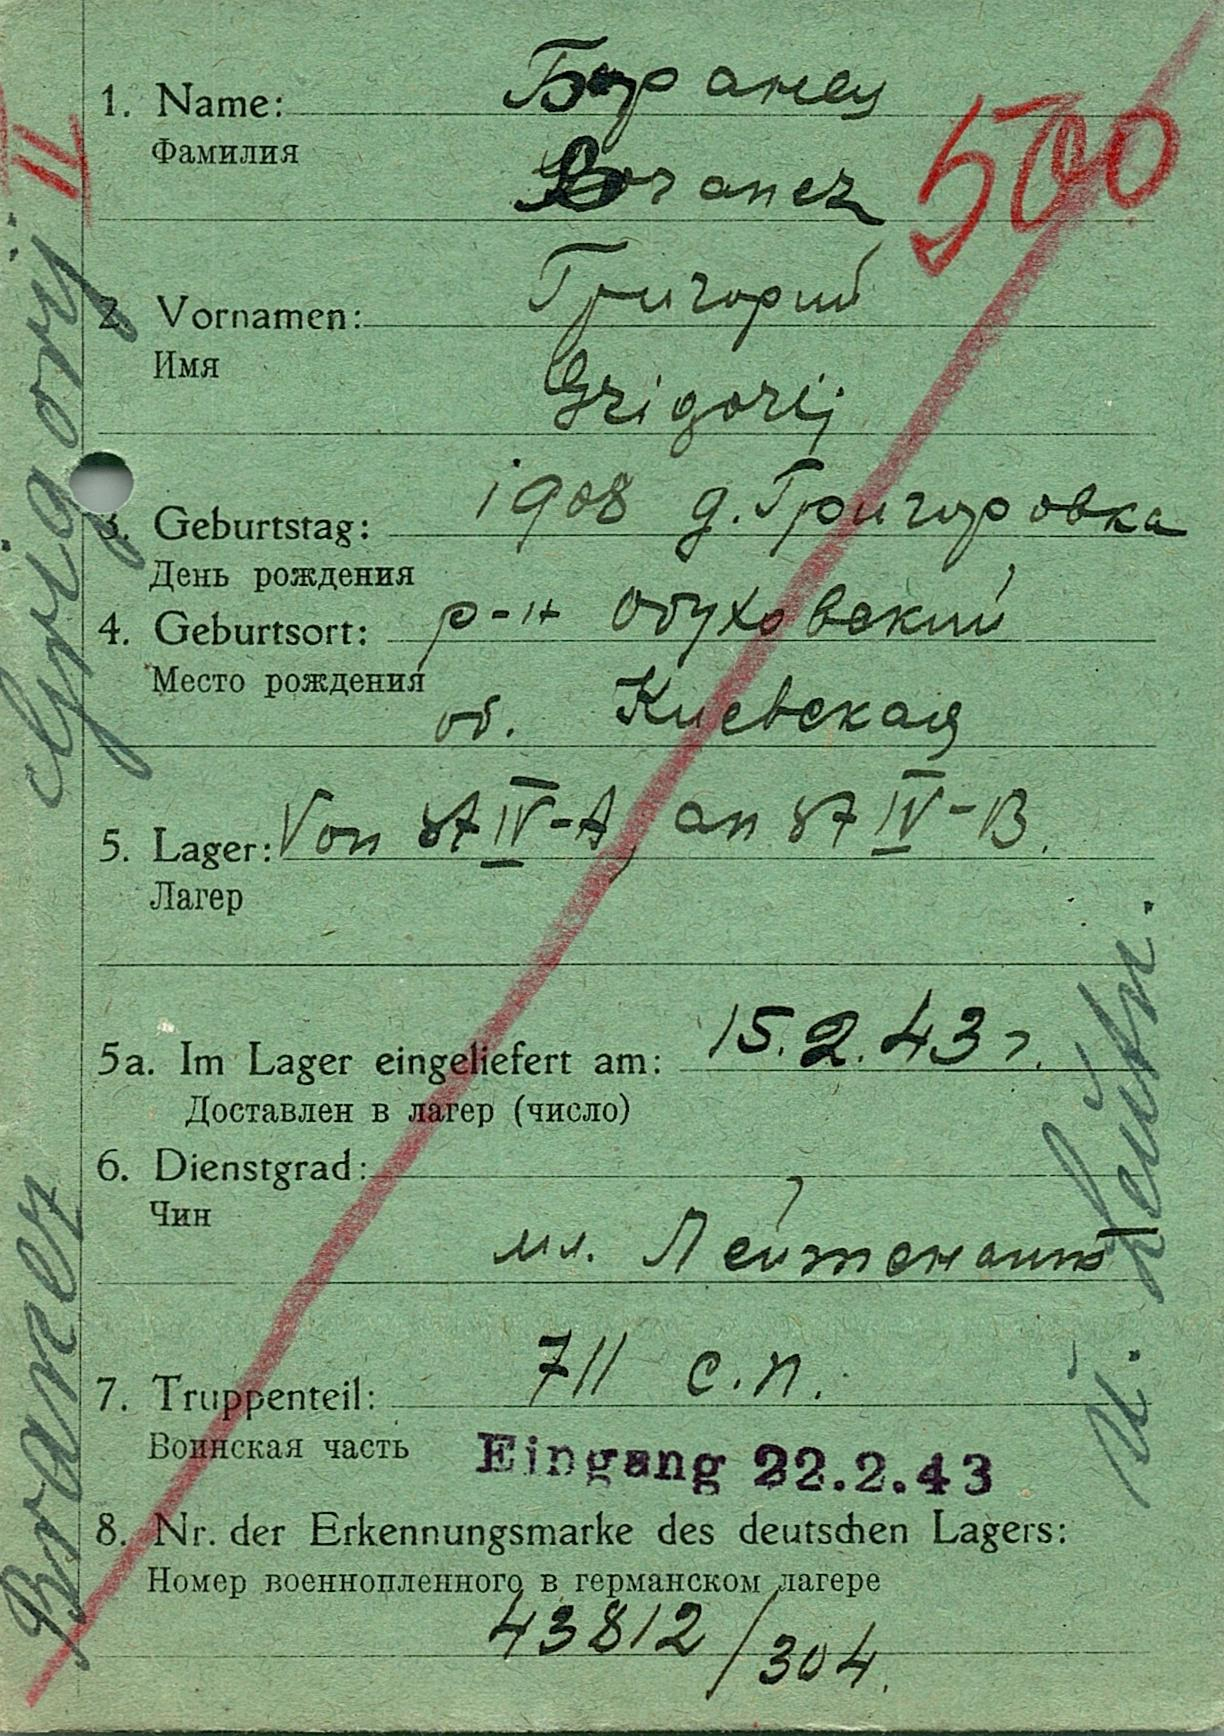 1. Name: Боранец
Фамилия
Boranez
500
II
2. Vornamen: Григорий
Имя
Grigorij
3. Geburtstag: 1908 д. Григоровка
День рождения
4. Geburtsort: р-н Обуховский
Место рождения
об. Киевская
5. Lager: Von St IV-A, an St IV-B.
Лагерь
5a. Im Lager eingeliefert am: 15.2.43 г.
Доставлен в лагер (число)
6. Dienstgrad:
Чин
мл. Лейтенант
7. Truppenteil: 711 с.п.
Воинская часть
Eingang 22.2.43
8. Nr. der Erkennungsmarke des deutschen Lagers:
Номер военнопленного в германском лагере
43812/304.
Branez Grigorij
U. Leutn.